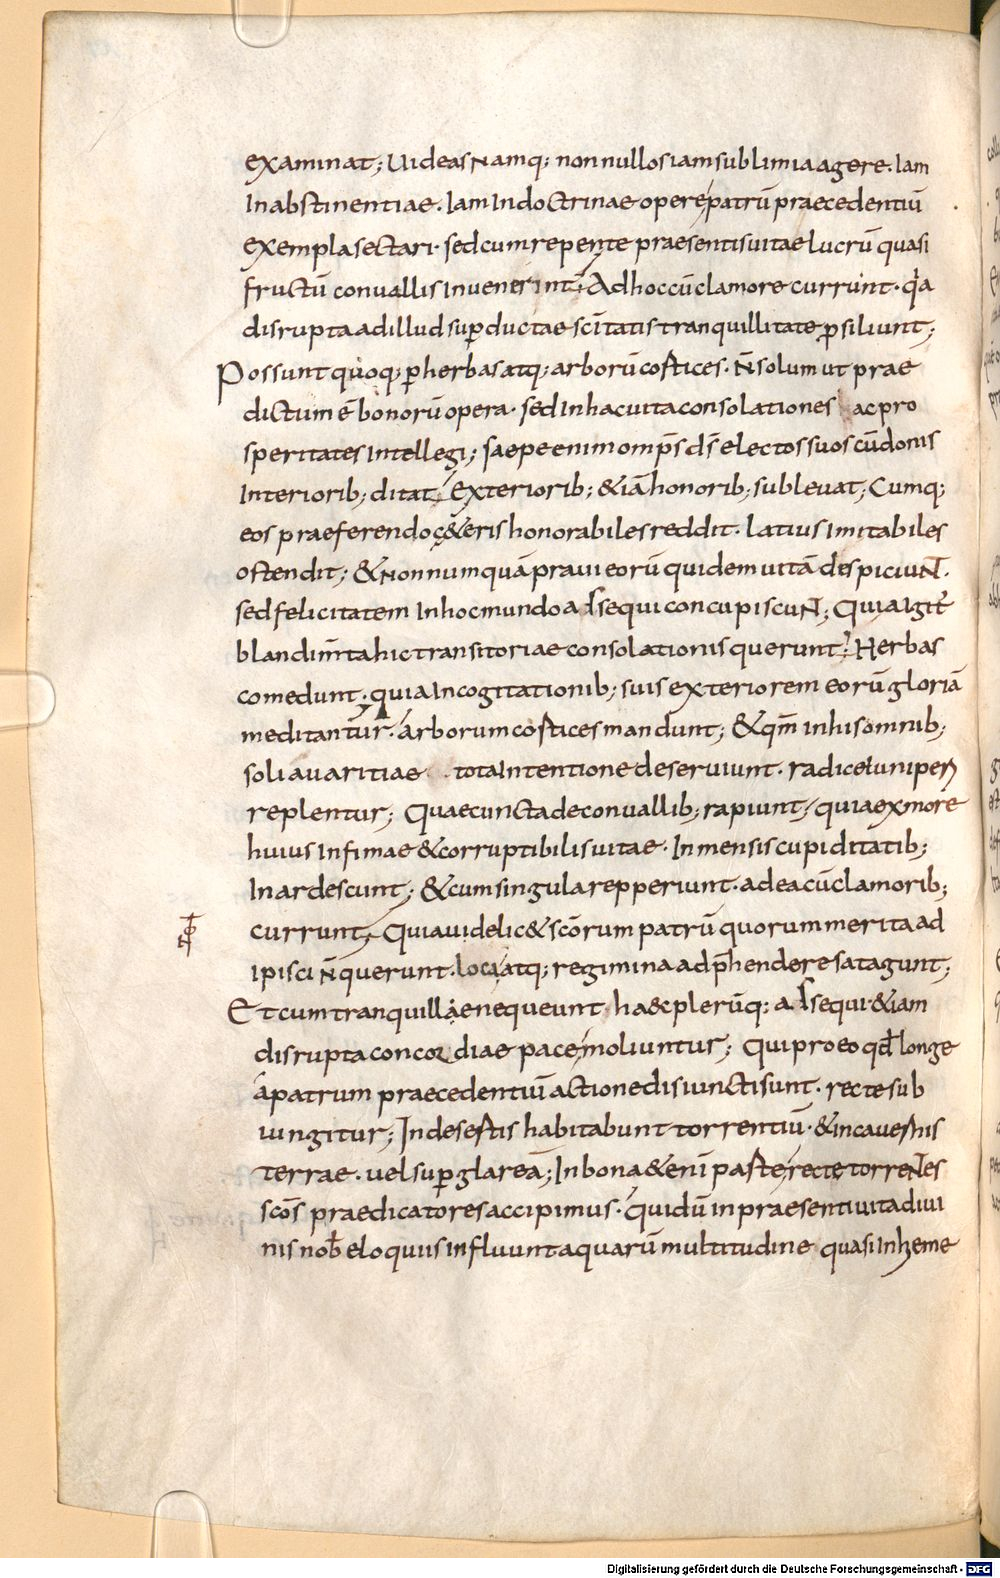 examinat; Uideas namq; non nullos iam sublimia agere. Iam
In abstinentiae. Iam In doctrinae opere patrū praecedentiū
exempla sectari. sed cum repente praesentis uitae lucrū quasi
fructū conuallis Inuenerint; Ad hoc cū clamore currunt. qa
disrupta ad illud sup ductae scītatis tranquillitate p siliunt;
Possunt quoq; p herbas atq; arborū cortices. n̄ solum ut prae
dictum ē bonorū opera. sed In hac uita consolationes ac pro
speritates Intellegi; saepe enim omp̄s d̄s electos suos cū donis
Interiorib; ditat, Exteriorib; & iā honorib; subleuat; Cumq;
eos praeferendo c&eris honorabiles reddit. Latius Imitabiles
ostendit; & non numquā praui eorū quidem uitā despiciunt.
sed felicitatem In hoc mundo adsequi concupiscunt; Quia Igit
blandim̄ta hic transitoriae consolationis querunt; Herbas
comedunt. quia In cogitationib; suis exteriorem eorū gloriā
meditantur. arborum cortices mandunt; & qm̄ in his omnib;
soli auaritiae tota Intentione deseruiunt. radice Iuniperi
replentur; Quae cuncta de conuallib; rapiunt, quia ex more
huius Infimae & corruptibilis uitae. Inmensis cupiditatib;
Inardescunt; & cum singula repperiunt. ad ea cū clamorib;
currunt, Quia uidelic& scōrum patrū quorum merita ad
ipisci n̄ querunt. loca atq; regimina adp̄hendere satagunt;
Et cum tranquillae nequeunt haec plerūq; adsequi. & iam
disrupta concordiae pace moliuntur; Qui pro eo qd longe
a patrum praecedentiū actione disiuncti sunt. recte sub
iungitur; In desertis habitabunt torrentiū. & in cauernis
terrae. uel sup glareā; In bona &enī parte recte torrentes
scōs praedicatores accipimus. qui dū in praesenti uita diui
nis nob eloquiis influunt aquarū multitudine quasi In hieme
Digitalisierung gefördert durch die Deutsche Forschungsgemeinschaft - DFG